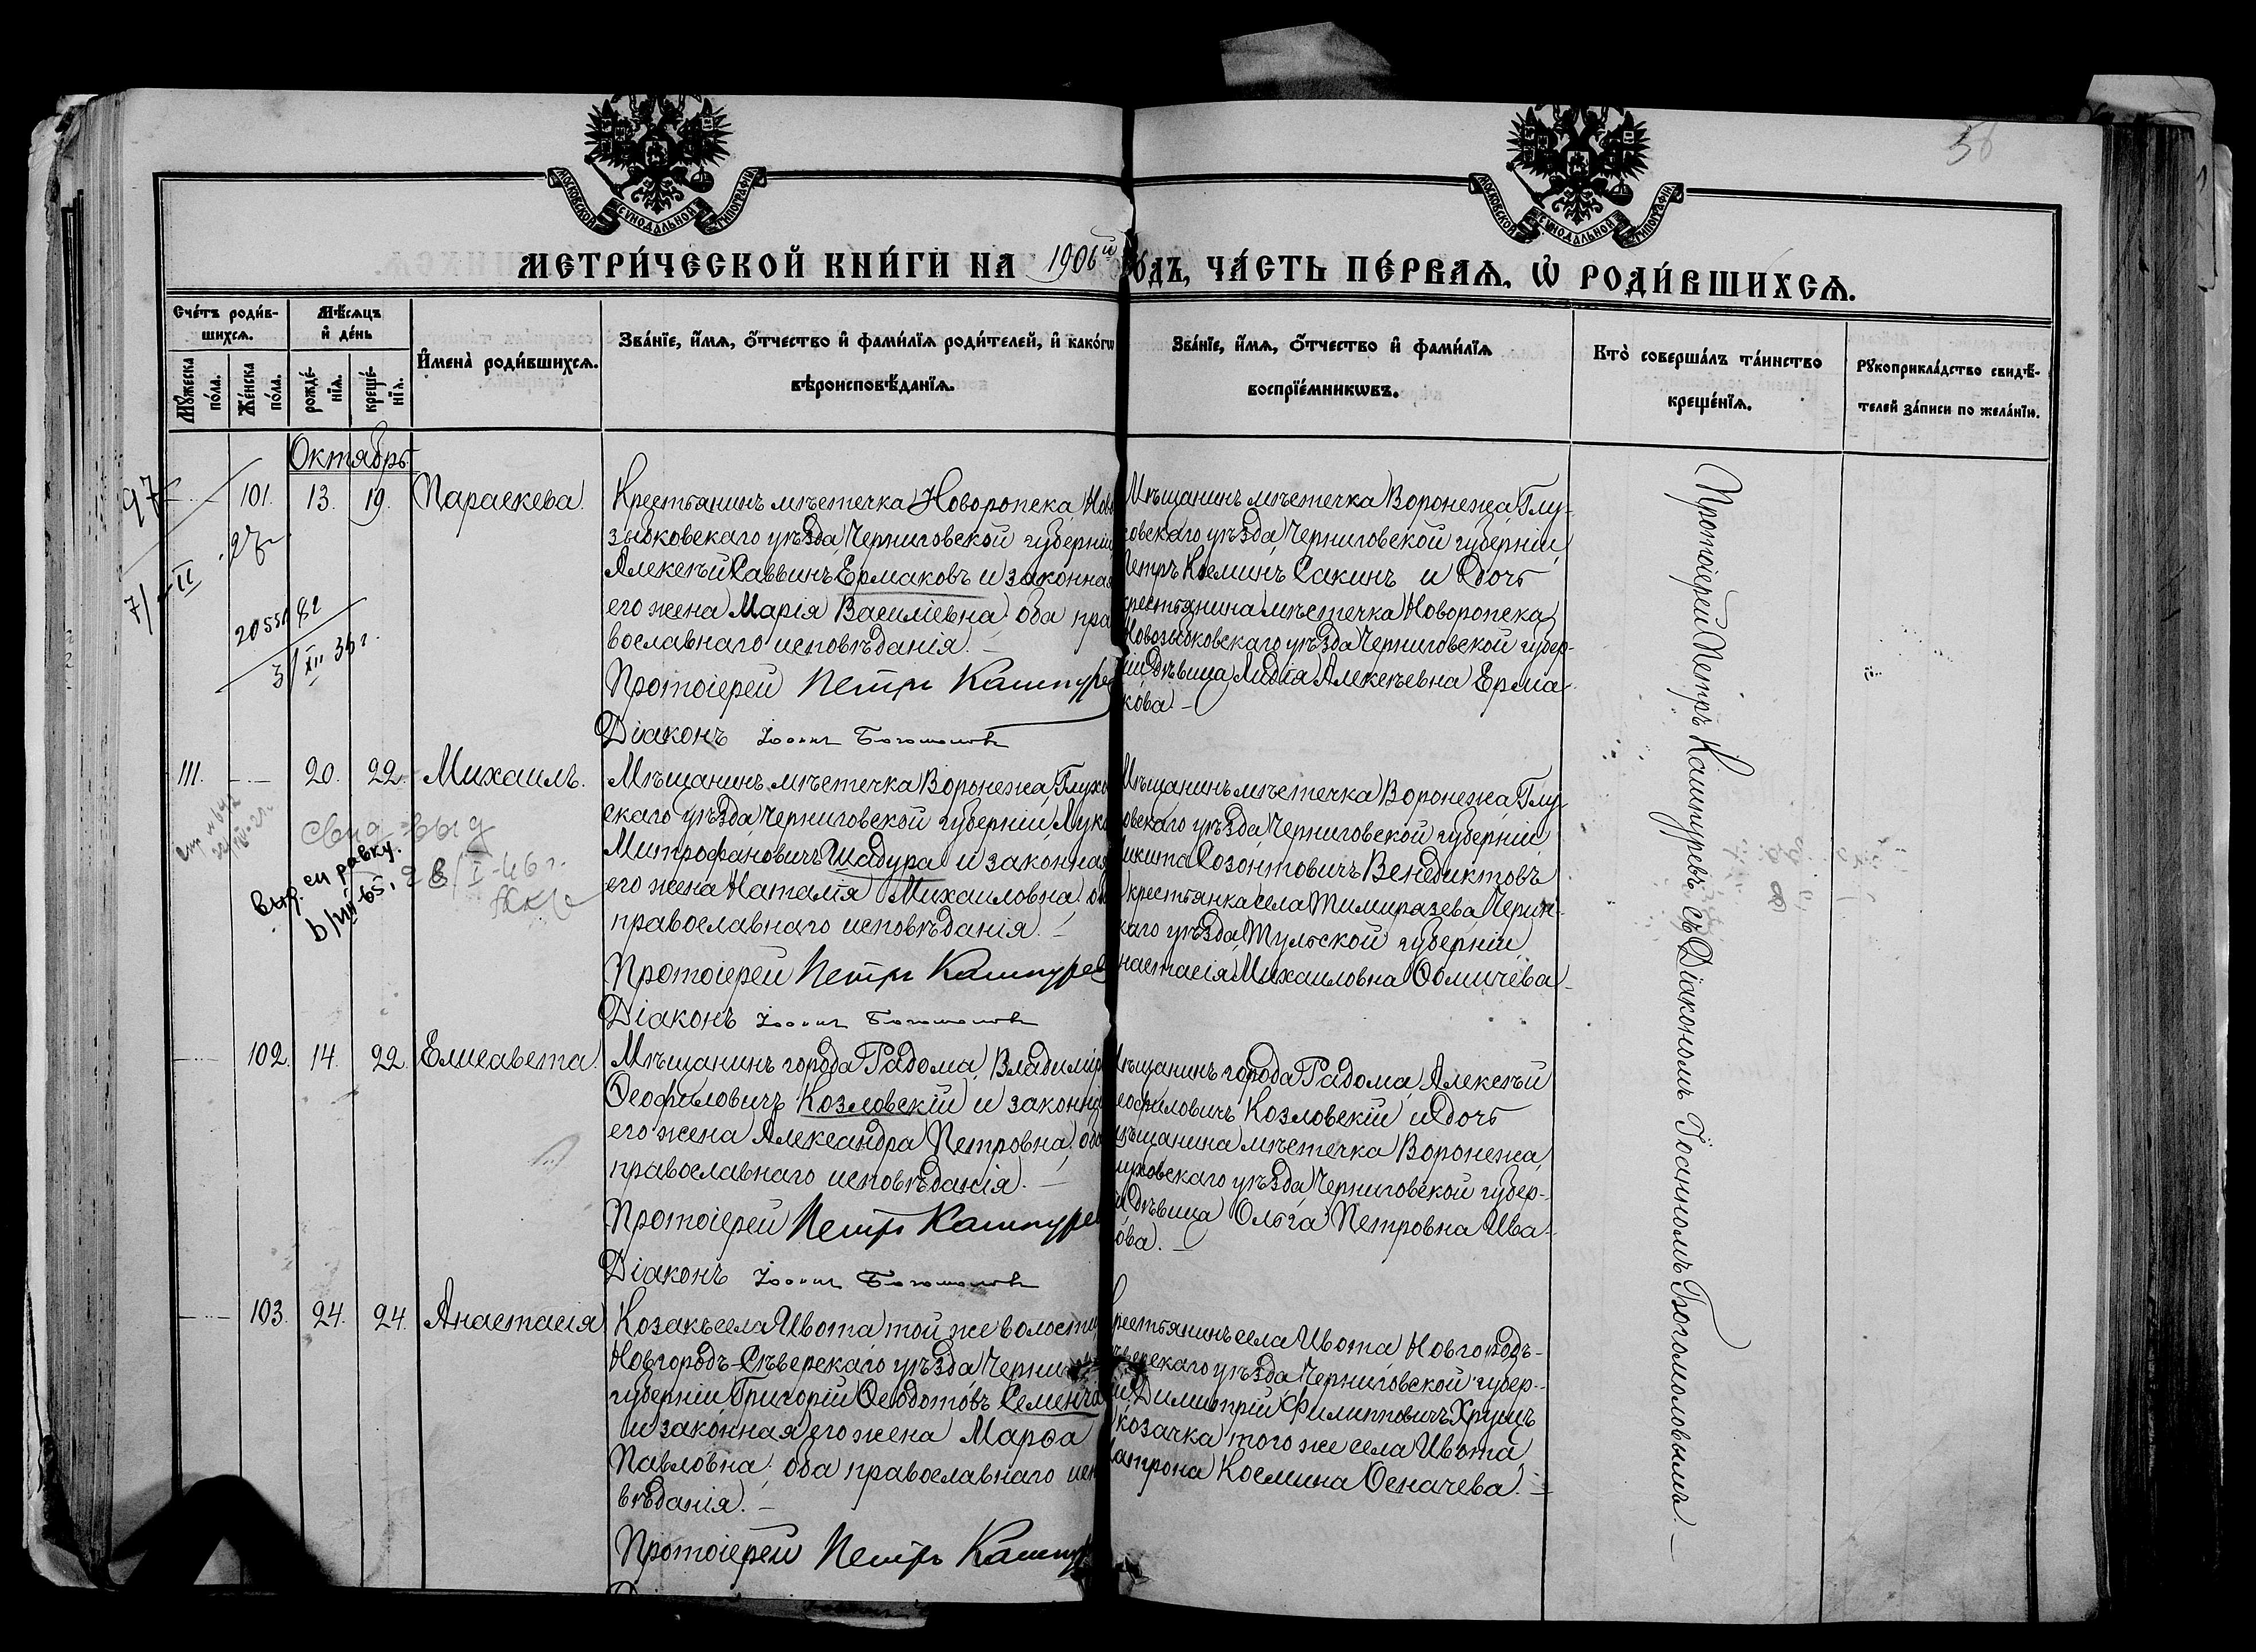 56
МОСКОВСКОЙ СѴНОДАЛЬНОЙ ТИПОГРАФІИ
МОСКОВСКОЙ СѴНОДАЛЬНОЙ ТИПОГРАФІИ
МЕТРИ́ЧЕСКОЙ КНИ́ГИ НА 1906й ГО́ДЪ, ЧА́СТЬ ПЕ́РВАѦ, Ѡ РОДИ́ВШИХСѦ.
Сче́тъ роди́в-
шихсѧ.
Мꙋ́жеска
по́ла.
Же́нска
по́ла.
Мѣ́сѧцъ
и҆ де́нь
рожде́-
нїѧ.
креще́-
нїѧ.
И҆мена̀ роди́вшихсѧ.
Зва́нїе, и҆́мѧ, ѻ҆́тчество и҆ фами́лїѧ роди́телей, и҆ како́гѡ
вѣроисповѣ́данїѧ.
Зва́нїе, и҆́мѧ, ѻ҆́тчество и҆ фами́лїѧ
воспрїе́мникѡвъ.
Кто̀ соверша́лъ та́инство
креще́нїѧ.
Рꙋкоприкла́дство свидѣ́-
телей за́писи по жела́нїю.
Октябрь
97
7/-II
101. 13. 19. Параскева.
Крестьянинъ мѣстечка Новоропска, Ново
зыбковскаго уѣзда, Черниговской губерніи
Алексѣй Саввинъ Ермаковъ и законная
его жена Марія Василіевна; оба пра
вославнаго исповѣданія. –
Протоіерей Петръ Кашпурев
Діаконъ Іоаннъ Богомолов
Мѣщанинъ мѣстечка Воронежа, Глу-
ховскаго уѣзда, Черниговской губерніи,
Петръ Косминъ Сакинъ и дочь
крестьянина мѣстечка Новоропска,
Новозыбковскаго уѣзда Черниговской губер-
ніи дѣвица Лидія Алексѣевна Ерма-
кова. –
3/XII 36г.
111. 20. 22. Михаилъ.
Мѣщанинъ мѣстечка Воронежа, Глухов
скаго уѣзда, Черниговской губерніи, Лука
Митрофановичъ Шадура и законная
его жена Наталія Михаиловна; оба
православнаго исповѣданія. –
Протоіерей Петръ Кашпурев
Діаконъ Іоаннъ Богомолов
Мѣщанинъ мѣстечка Воронежа, Глу-
ховскаго уѣзда, Черниговской губерніи
Никита Созонтовичъ Венедиктовъ
крестьянка села Тимирязева,
скаго уѣзда, Тульской губерніи,
Анастасія Михаиловна
выд. справку.
28/I-46г.
102. 14. 22. Елисавета.
Мѣщанинъ города Радома, Владиміръ
Ѳеофиловичъ Козловскій и законная
его жена Александра Петровна; оба
православнаго исповѣданія. –
Протоіерей Петръ Кашпурев
Діаконъ Іоаннъ Богомолов
Мѣщанинъ города Радома, Алексѣй
Ѳеофиловичъ Козловскій и дочь
мѣщанина мѣстечка Воронежа,
Глуховскаго уѣзда, Черниговской губер-
ніи, дѣвица Ольга Петровна Ива-
нова. –
103. 24. 24. Анастасія
Козакъ села Ивота, той же волости,
Новгородъ-Сѣверскаго уѣзда, Черни
губерніи Григорій Ѳеодотовъ Семенча
и законная его жена Марѳа
Павловна; оба православнаго испо
вѣданія. –
Протоіерей Петръ Кашпур
Крестьянинъ села Ивота, Новгородъ-
Сѣверскаго уѣзда, Черниговской губер-
ніи, Димитрій Филипповичъ Хрущъ
козачка того же села Ивота,
Матрона Космина Осначева. –
Протоіерей Петръ Кашпуревъ съ Діакономъ Іоанномъ Богомоловымъ. –